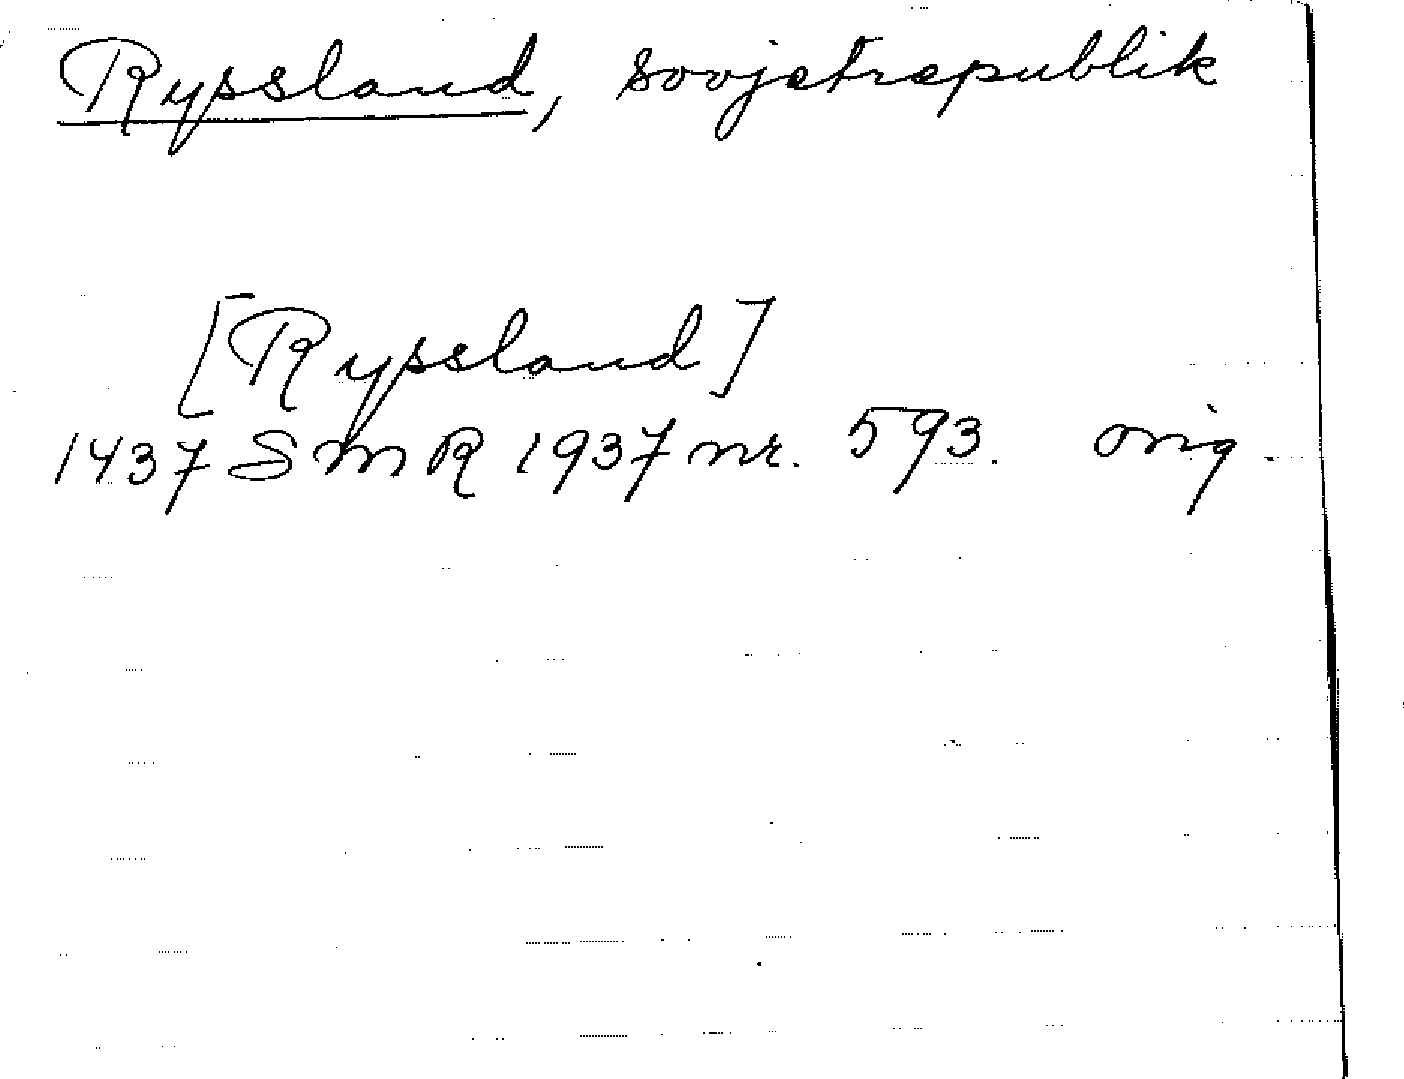 Ryssland, Sovjetrepublik
[Ryssland]
1437 SMR 1937 nr. 593. orig